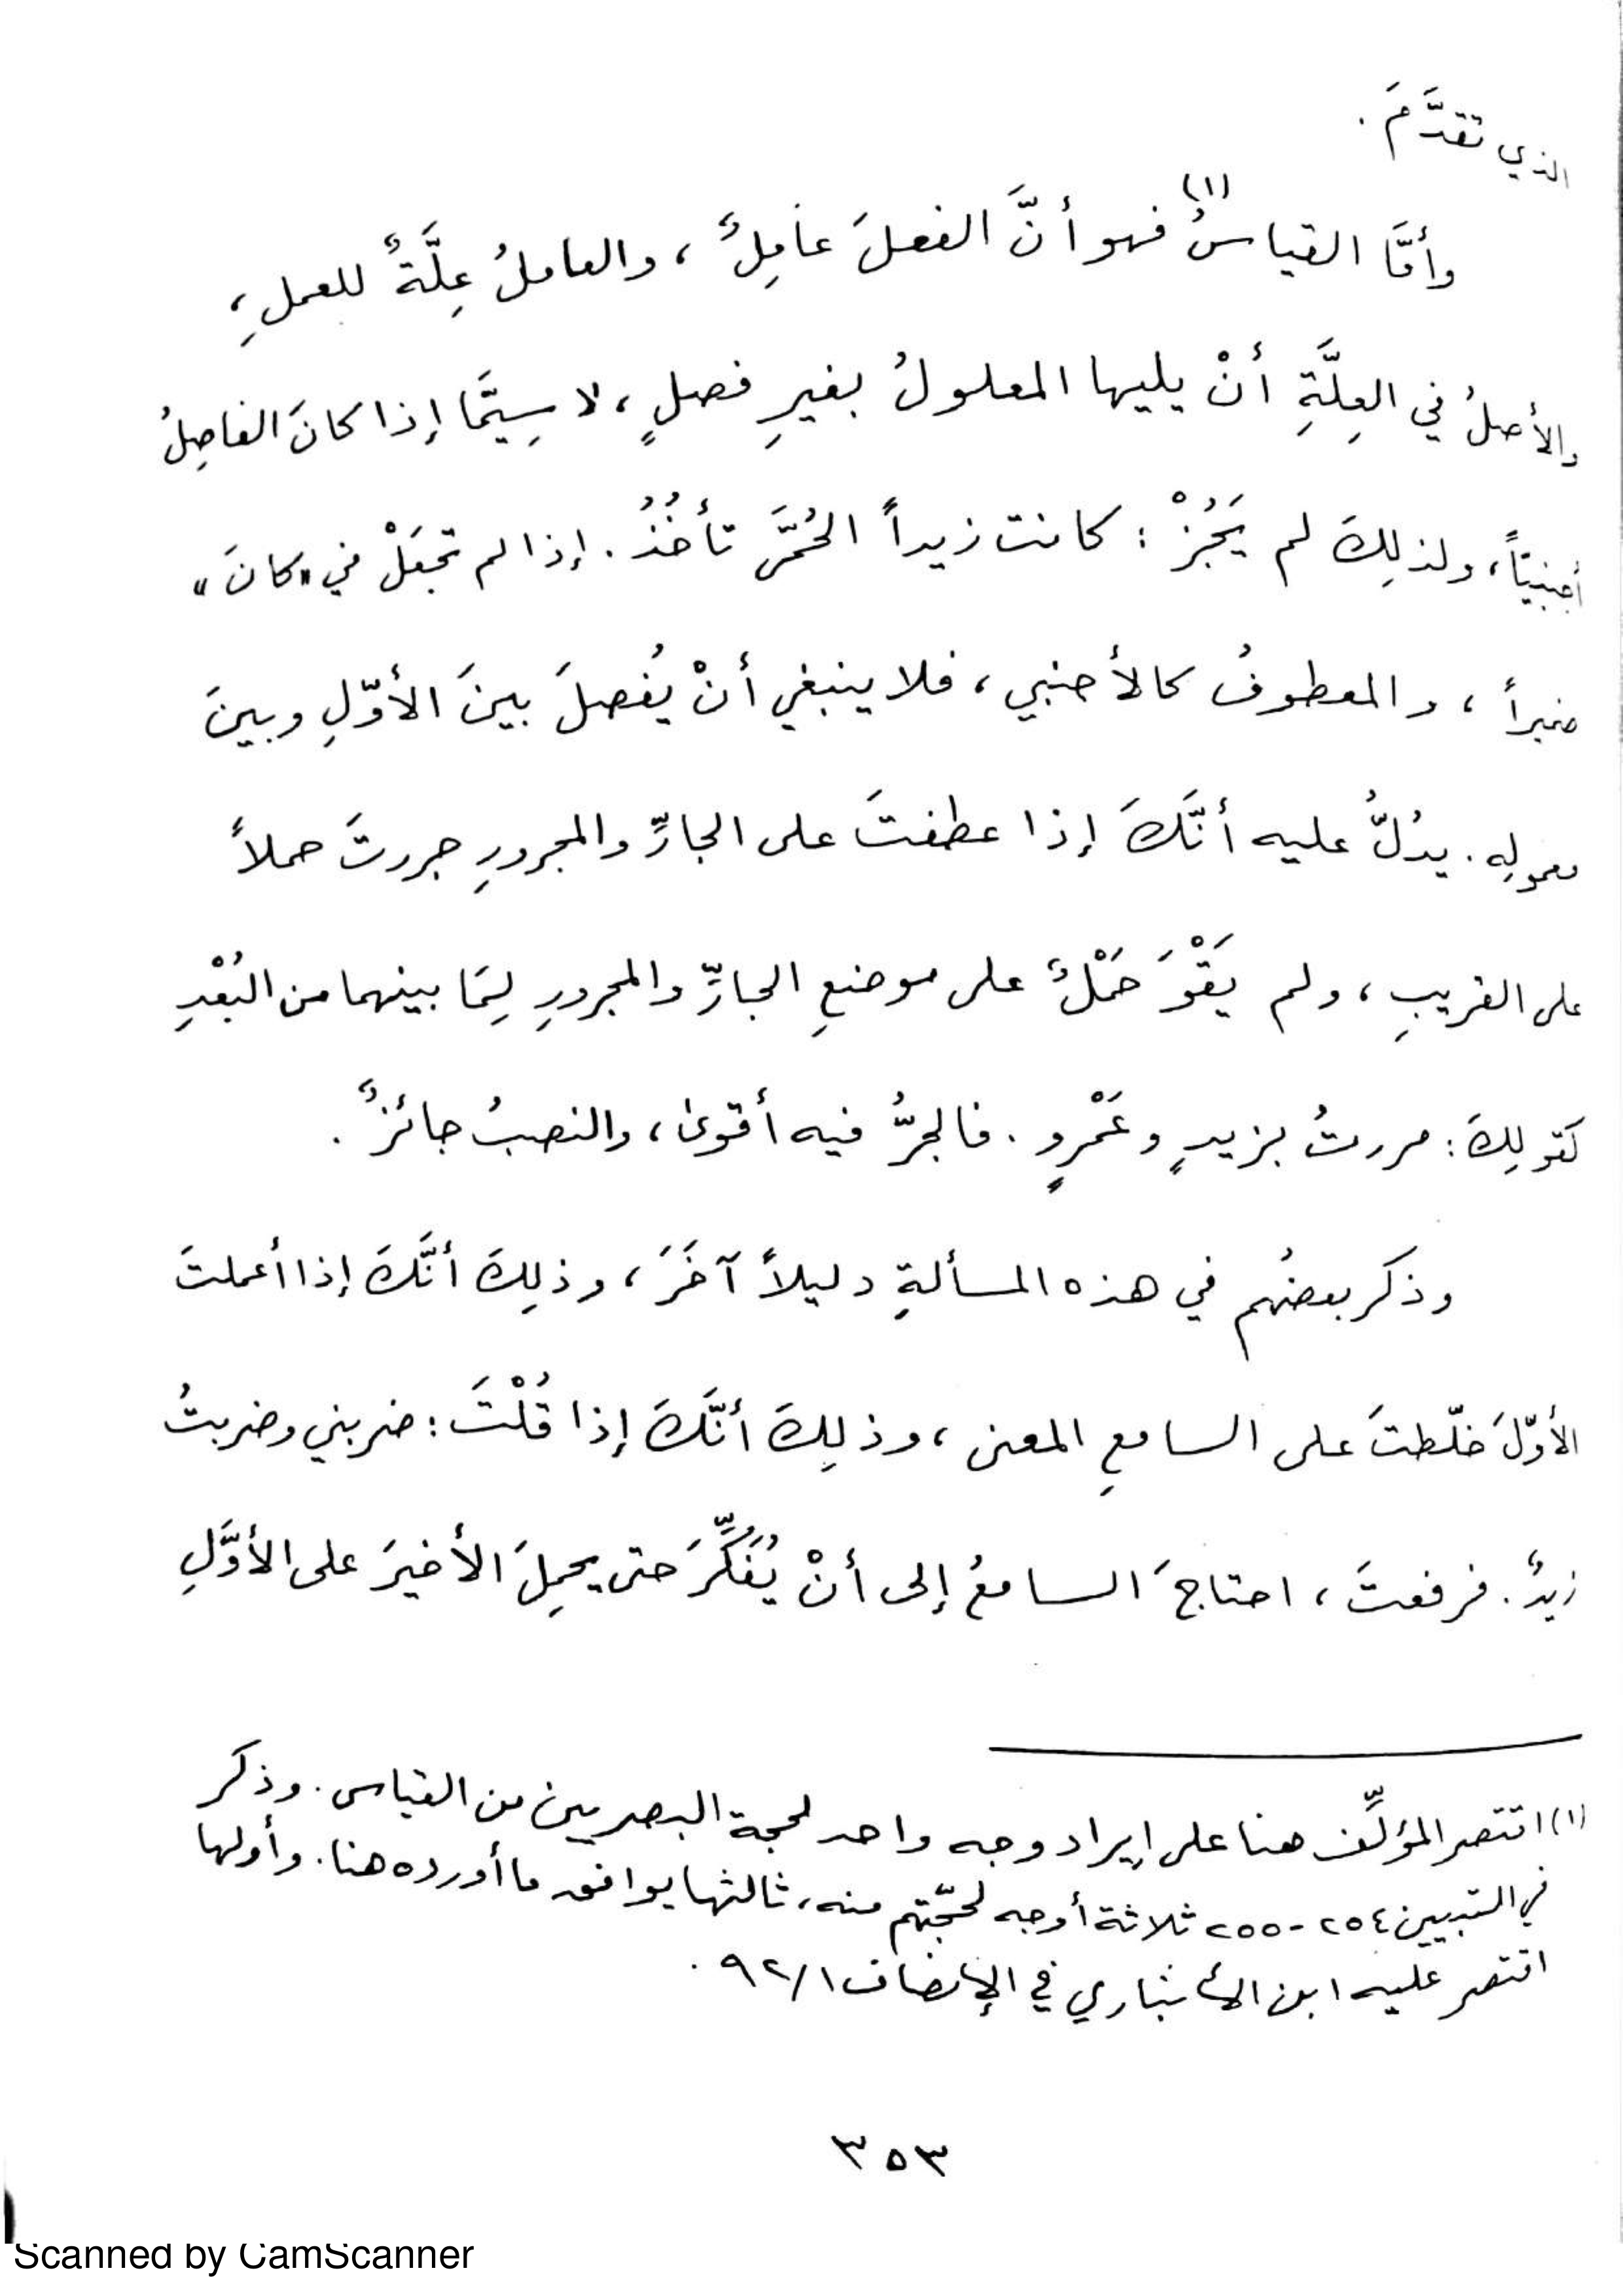 الذي تقدَّمَ .
وأمَّا القياسُ(١) فهو أنَّ الفعلَ عامِلٌ ، والعاملُ عِلَّةٌ للعملِ ،
والأصلُ في العِلَّةِ أنْ يليها المعلولُ بغيرِ فصلٍ ، لا سِيَّما إذا كانَ الفاصِلُ
أجنبيّاً ، ولذلِكَ لم يَجُزْ : كانت زيداً الحُمَّى تأخُذُ . إذا لم تجعَلْ في «كانَ»
ضميراً ، والمعطوفُ كالأجنبي ، فلا ينبغي أنْ يُفصلَ بينَ الأوّلِ وبينَ
معمولِه . يدُلُّ عليه أنَّكَ إذا عطفتَ على الجارِّ والمجرورِ جررتَ حملاً
على القريبِ ، ولم يَقْوَ حَمْلٌ على موضعِ الجارِّ والمجرورِ لِمَا بينهما من البُعْدِ
كقولِكَ : مررتُ بزيدٍ وعَمْرٍو . فالجرُّ فيه أقوىٰ ، والنصبُ جائزٌ .
وذكر بعضُهم في هذه المسألةِ دليلاً آخَرَ ، وذلِكَ أنَّكَ إذا أعملتَ
الأوّلَ خلّطتَ على السامعِ المعنى ، وذلِكَ أنَّكَ إذا قُلْتَ : ضربني وضربتُ
زيدٌ . فرفعتَ ، احتاجَ السامعُ إلى أنْ يُفَكِّرَ حتى يحمِلَ الأخيرَ على الأوَّلِ
(١) اقتصر المؤلِّف هنا على إيراد وجه واحد لحجة البصريين من القياس . وذكر
في التبيين ٢٥٤ - ٢٥٥ ثلاثة أوجه لحجّتهم منه ، ثالثها يوافق ما أورده هنا . وأولها
اقتصر عليه ابن الأنباري في الإنصاف ٩٢/١ .
٣٥٣
Scanned by CamScanner